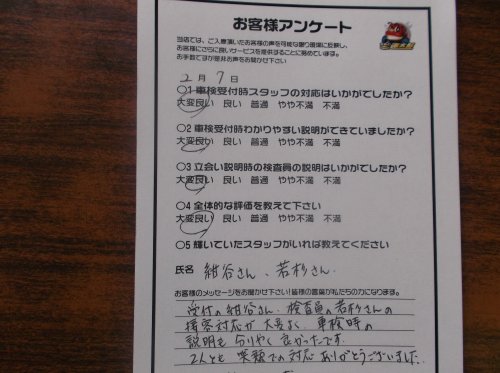 お客様アンケート
当店では、ご入庫頂いたお客様の声を可能な限り現場に反映し、
お客様にさらに良いサービスを提供することに努めています。
お手数ですが是非お声をお聞かせ下さい
2月7日
○1 車検受付時スタッフの対応はいかがでしたか？
大変良い 良い 普通 やや不満 不満
○2 車検受付時わかりやすい説明ができていましたか？
大変良い 良い 普通 やや不満 不満
○3 立会い説明時の検査員の説明はいかがでしたか？
大変良い 良い 普通 やや不満 不満
○4 全体的な評価を教えて下さい
大変良い 良い 普通 やや不満 不満
○5 輝いていたスタッフがいれば教えてください
氏名 紺谷さん、若杉さん
お客様のメッセージをお聞かせ下さい!皆様の言葉が私たちの力になります。
受付の紺谷さん、検査員の若杉さんの
接客対応が大変よく、車検時の
説明も分りやすく良かったです。
2人とも笑顔での対応ありがとうございました。